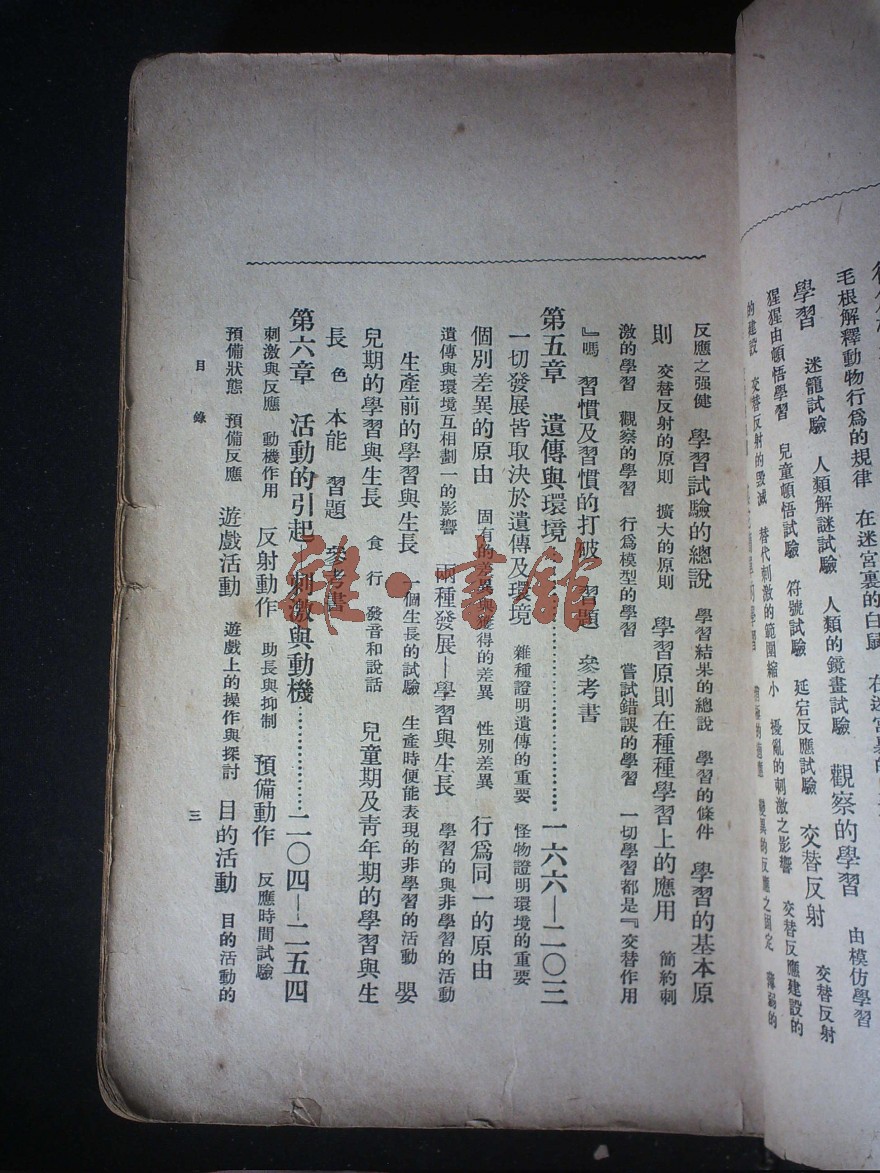 毛根解釋動物行爲的規律　在迷宮裏的白鼠
學習　迷籠試驗　人類解謎試驗　人類的鏡畫試驗　觀察的學習　由模仿學習
猩猩由頓悟學習　兒童頓悟試驗　符號試驗　延宕反應試驗　交替反射　交替反射
的建設　交替反射的毀滅　替代刺激的範圍縮小　擾亂的刺激之影響　交替反應建設的
變異的反應之固定　薄弱的
反應之强健　學習試驗的總說　學習結果的總說　學習的條件　學習的基本原
則　交替反射的原則　擴大的原則　學習原則在種種學習上的應用　簡約刺
激的學習　觀察的學習　行爲模型的學習　嘗試錯誤的學習　一切學習都是『交替作用
』嗎　習慣及習慣的打破　習題　參考書
第五章　遺傳與環境……………………一六六—二〇三
一切發展皆取決於遺傳及環境　雜種證明遺傳的重要　怪物證明環境的重要
個別差異的原由　固有的差異與獲得的差異　性別差異　行爲同一的原由
遺傳與環境互相劃一的影響　兩種發展—學習與生長　學習的與非學習的活動
生產前的學習與生長　一個生長的試驗　生產時便能表現的非學習的活動　嬰
兒期的學習與生長　食　行　發音和說話　兒童期及靑年期的學習與生
長　色　本能　習題　參考書
第六章　活動的引起　刺激與動機……………二〇四—二五四
刺激與反應　動機作用　反射動作　助長與抑制　預備動作　反應時間試驗
預備狀態　預備反應　遊戲活動　遊戲上的操作與探討　目的活動　目的活動的
目錄
三
雜·書館